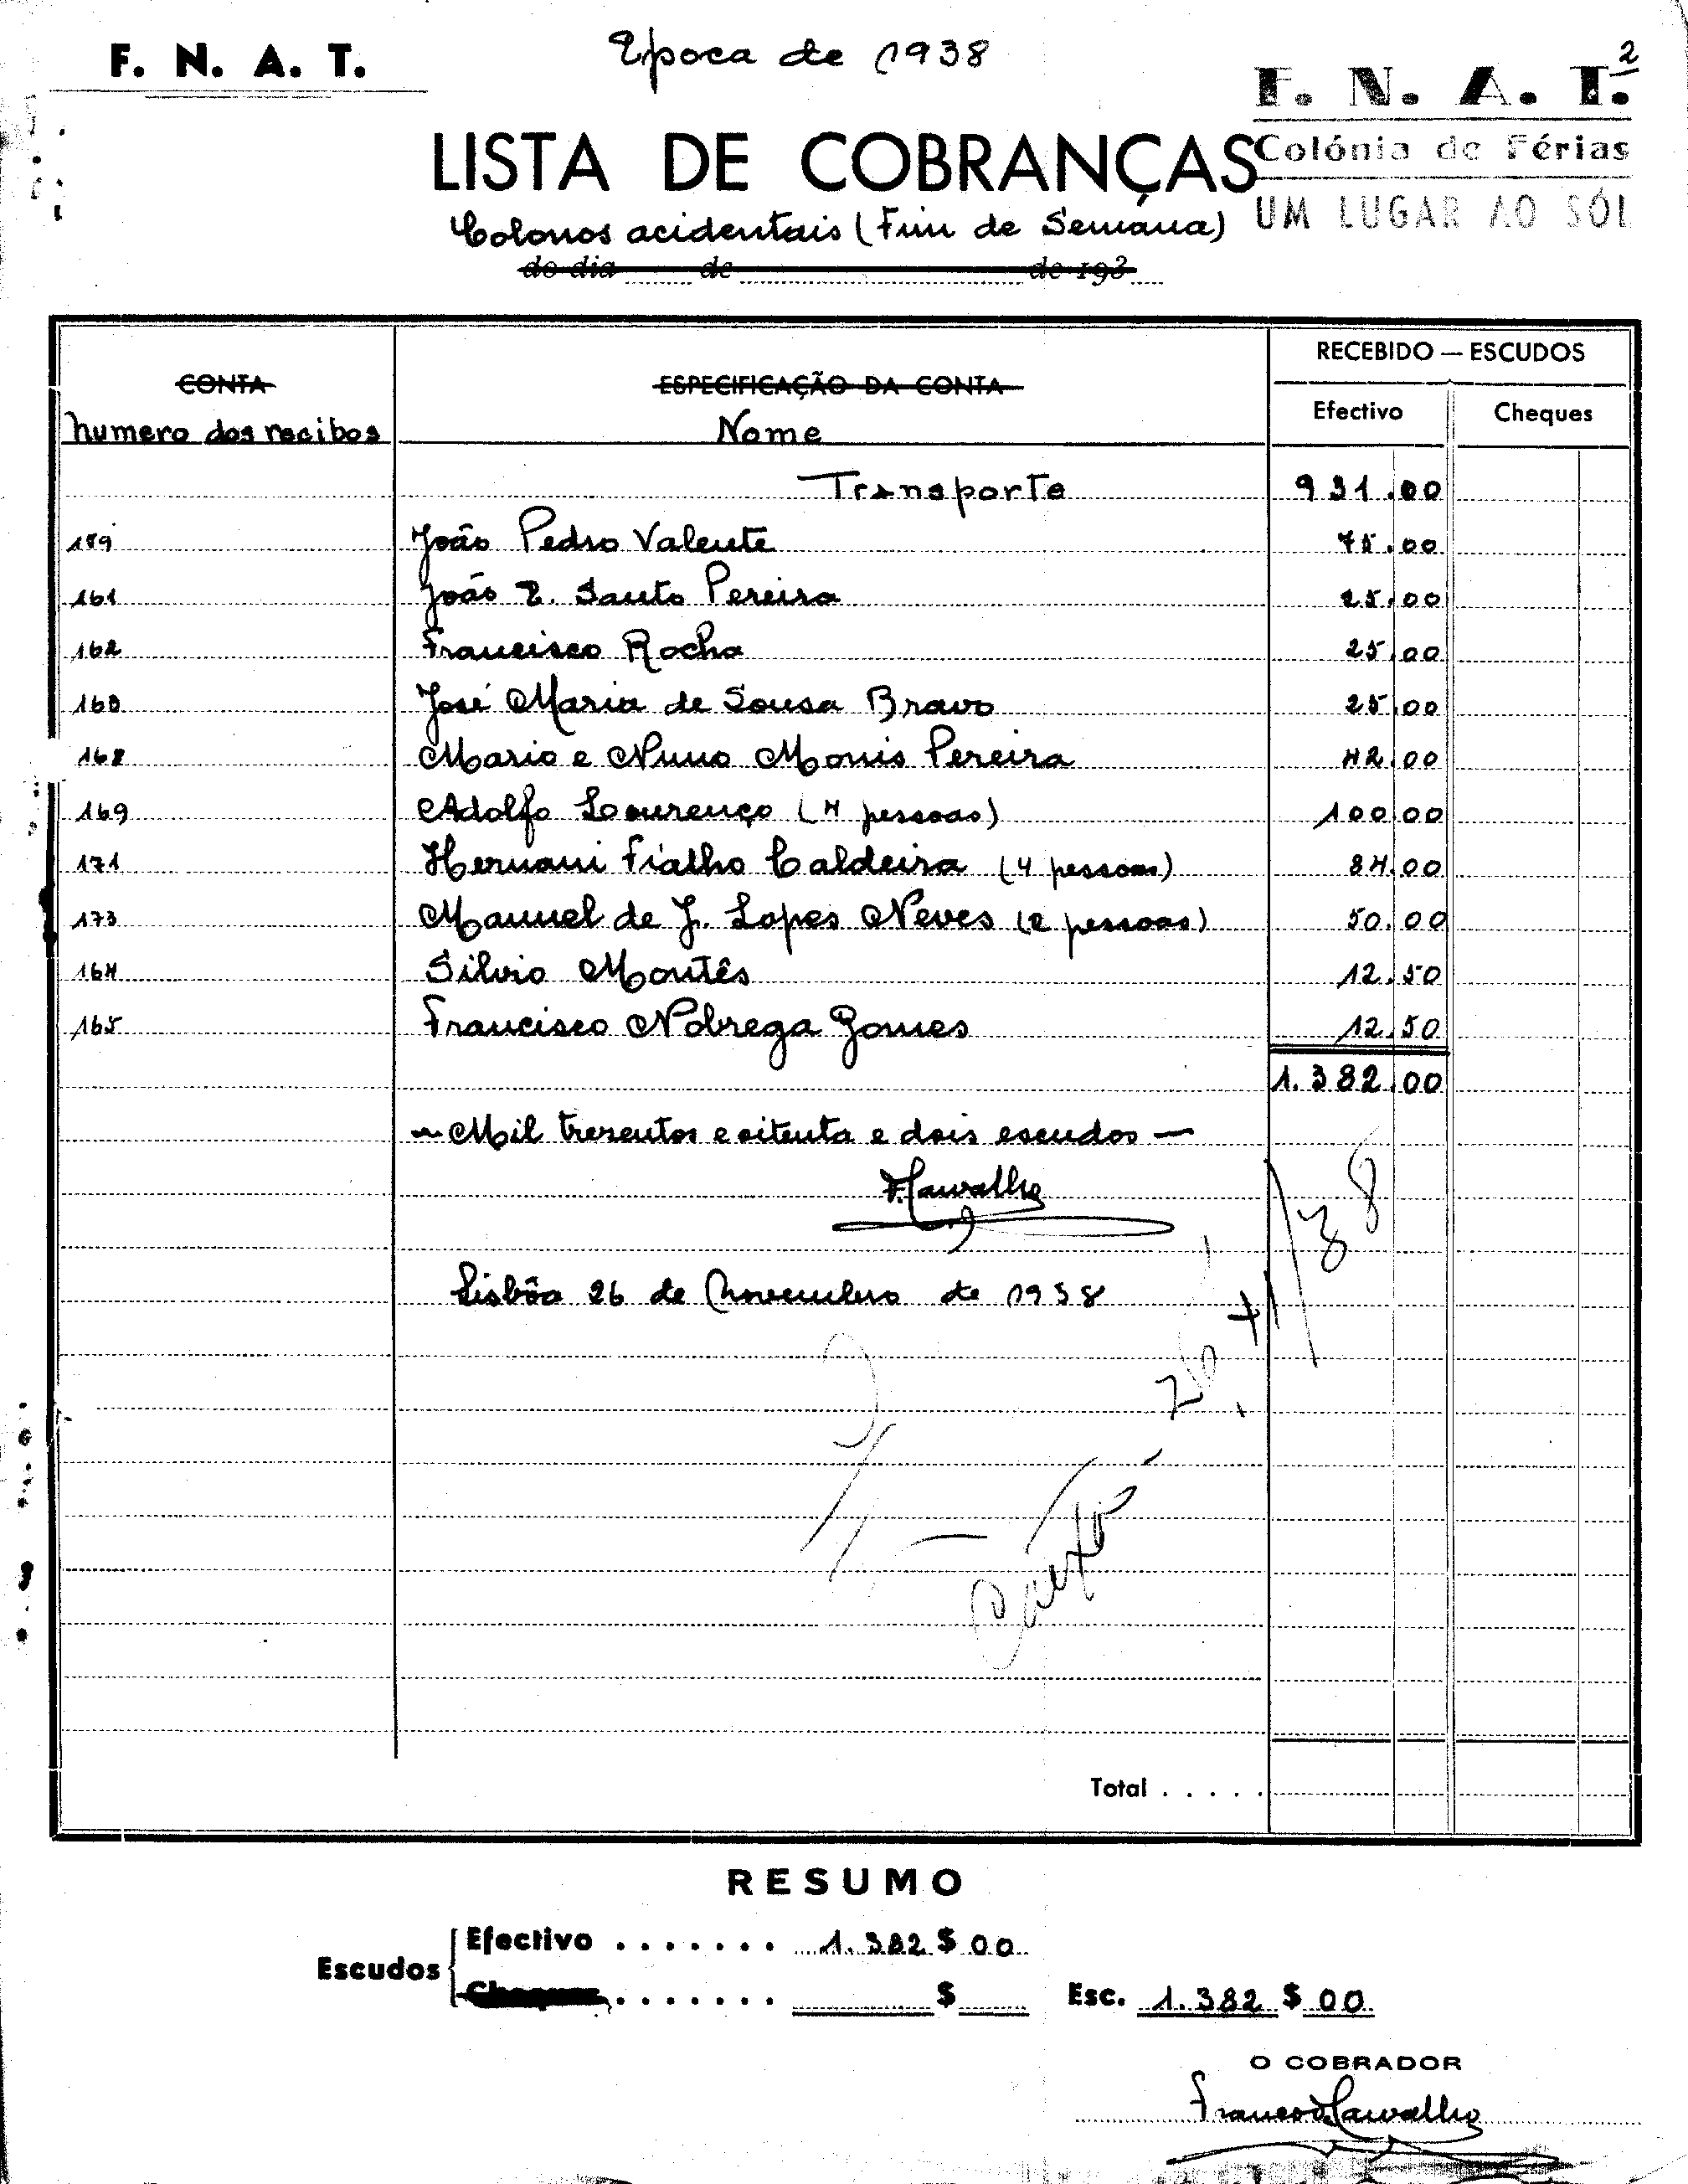 F. N. A. T.
Epoca de 1938
2
F. N. A. T.
LISTA DE COBRANÇAS
Colónia de Férias
UM LUGAR AO SÓL
Colonos acidentais (Fim de Semana)
do dia de de 193
RECEBIDO — ESCUDOS
CONTA ESPECIFICAÇÃO DA CONTA
Efectivo Cheques
numero dos recibos Nome
Transporte 931.00
159 João Pedro Valente 75.00
161 João E. Santo Pereira 25.00
162 Francisco Rocha 25.00
José Maria de Sousa Bravo 25.00
168 Mario e Nuno Monis Pereira 42.00
169 Adolfo Lourenço (4 pessoas) 100.00
171 Hernani Fialho Caldeira (4 pessoas) 84.00
173 Manuel de J. Lopes Neves (2 pessoas) 50.00
164 Silvio Montês 12.50
165 Francisco Nobrega Gomes 12.50
1.382.00
— Mil trezentos e oitenta e dois escudos —
F. Carvalho
Lisbôa 26 de Novembro de 1938
Total . . . . .
RESUMO
Escudos
Efectivo . . . . . . . 1.382 $ 00
Cheques . . . . . . . $
Esc. 1.382 $ 00
O COBRADOR